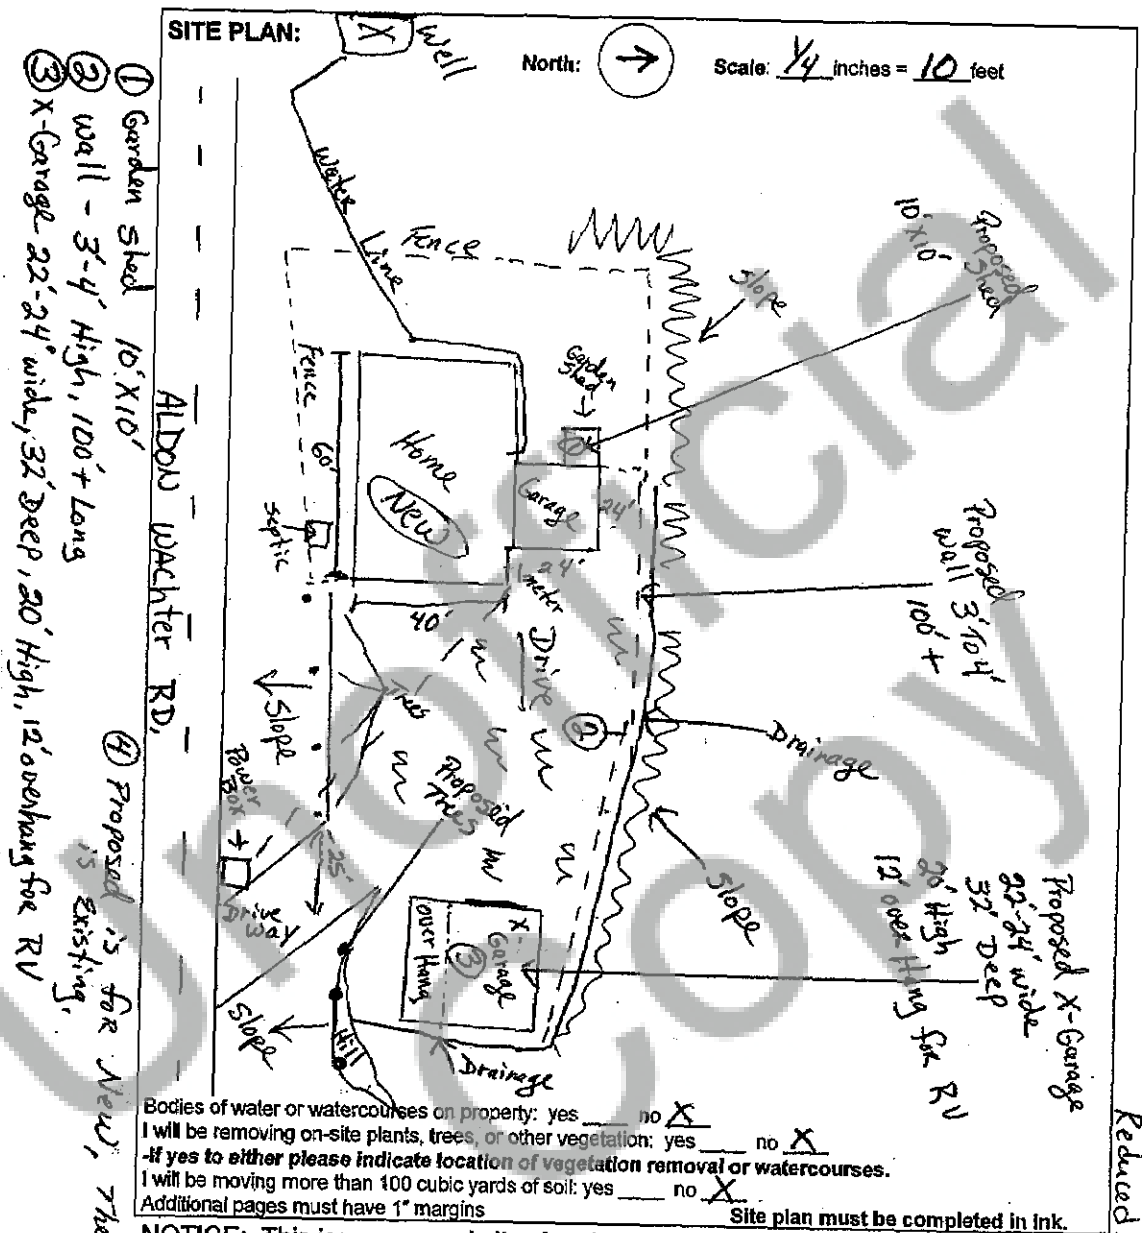 SITE PLAN:
X Well
North:
Scale: 1/4 inches = 10 feet
Water
Line
Fence
Slope
Proposed
Shed
10'X10'
Garden
Shed
Fence
60'
Home
New
Garage
24'
24'
septic
meter
40'
Drive
Proposed
wall 3' To 4'
100' +
2
Drainage
Trees
Slope
Power
Box
Proposed
Trees
25'
Driveway
Slope
X-
Garage
3
over Hang
Proposed X-Garage
22'-24' wide
32' Deep
20' High
12' over Hang for RV
Slope
Hill
Drainage
ALDON WAchter RD.
1 Garden shed 10'X10'
2 wall - 3'-4' High, 100' + Long
3 X-Garage 22'-24' wide, 32' Deep, 20' High, 12' overhang for RV
4 Proposed is for New, The
is existing.
Bodies of water or watercourses on property: yes ____ no X
I will be removing on-site plants, trees, or other vegetation: yes ____ no X
-If yes to either please indicate location of vegetation removal or watercourses.
I will be moving more than 100 cubic yards of soil: yes ____ no X
Additional pages must have 1" margins
Site plan must be completed in ink.
Reduced
Unofficial
Copy